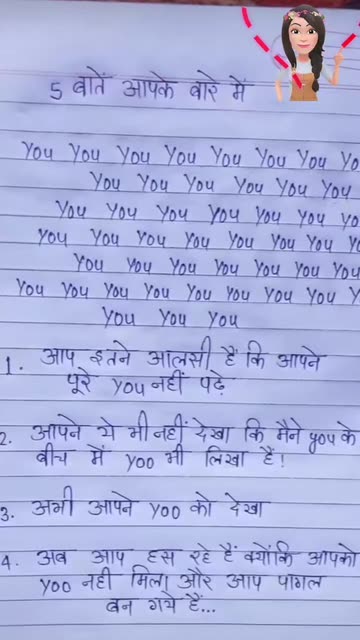 5 बातें आपके बारे में
You You You You You You You Yo
You You You You You You
You You You You You You Yo
You You You You You You Yo
You You You You You You You
You You You You You You You You Y
You You You
1. आप इतने आलसी हैं कि आपने
पूरे You नहीं पढ़े
2. आपने ये भी नहीं देखा कि मैंने you के
बीच में yoo भी लिखा हैं!
3. अभी आपने yoo को देखा
4. अब आप हस रहे हैं क्योंकि आपको
yoo नही मिला और आप पागल
बन गये हैं...